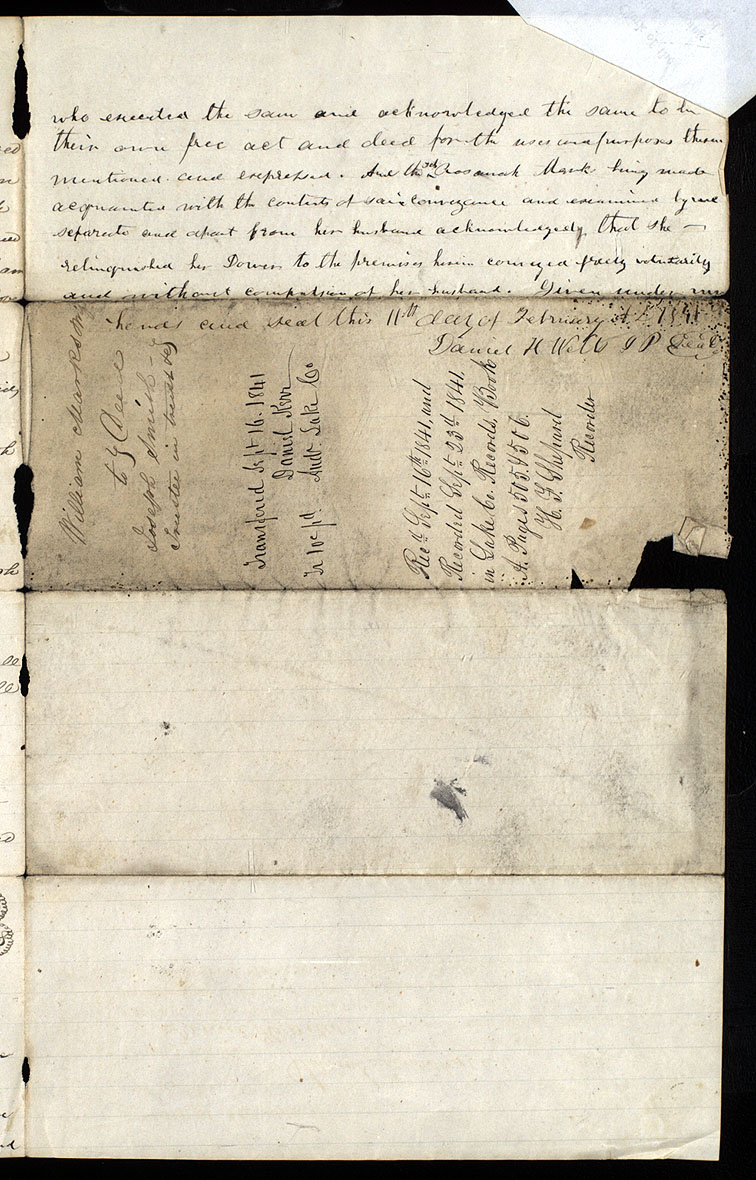 who executed the same and acknowledged the same to be
their own free act and deed for the uses and purposes therein
mentioned and expressed. And the sd Rosannah Marks being made
acquainted with the contents of said conveyance and examined by me
separate and apart from her husband acknowledgedg that she —
relinquished her Dower to the premises herein conveyed freely voluntarily
and without compulsion of her husband. Given under my
hand and seal this 11th day of February A D 1841
Daniel H Wells J P Seal
William Marks
to } Deed
Joseph Smith
Trustee in trust &c
Transfered Sept 16. 1841
Daniel Kerr
Audt. Lake Co
Tr 10c pd
Recd Sept. 16th 1841, and
Recorded Sept. 23d 1841.
in Lake Co. Records, Book
A. Pages 505 & 506.
H. Shepard
Recorder